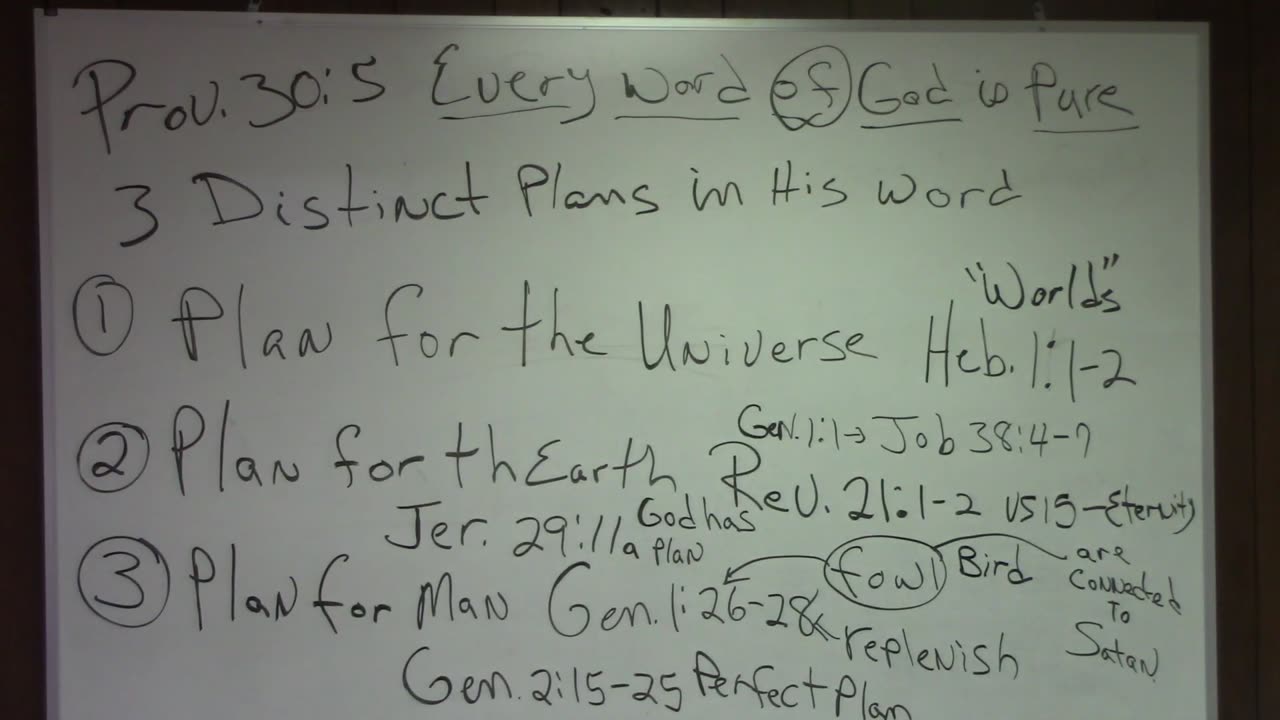 Prov. 30:5 Every Word of God is Pure
3 Distinct Plans in His Word
"Worlds"
① Plan for the Universe Heb. 1:1-2
Gen. 1:1→ Job 38:4-7
② Plan for th Earth Rev. 21:1-2 VS15-Eternity
Jer. 29:11 God has a Plan
③ Plan for Man Gen. 1:26-28 fowl Bird are Connected To Satan
replenish
Gen. 2:15-25 Perfect Plan